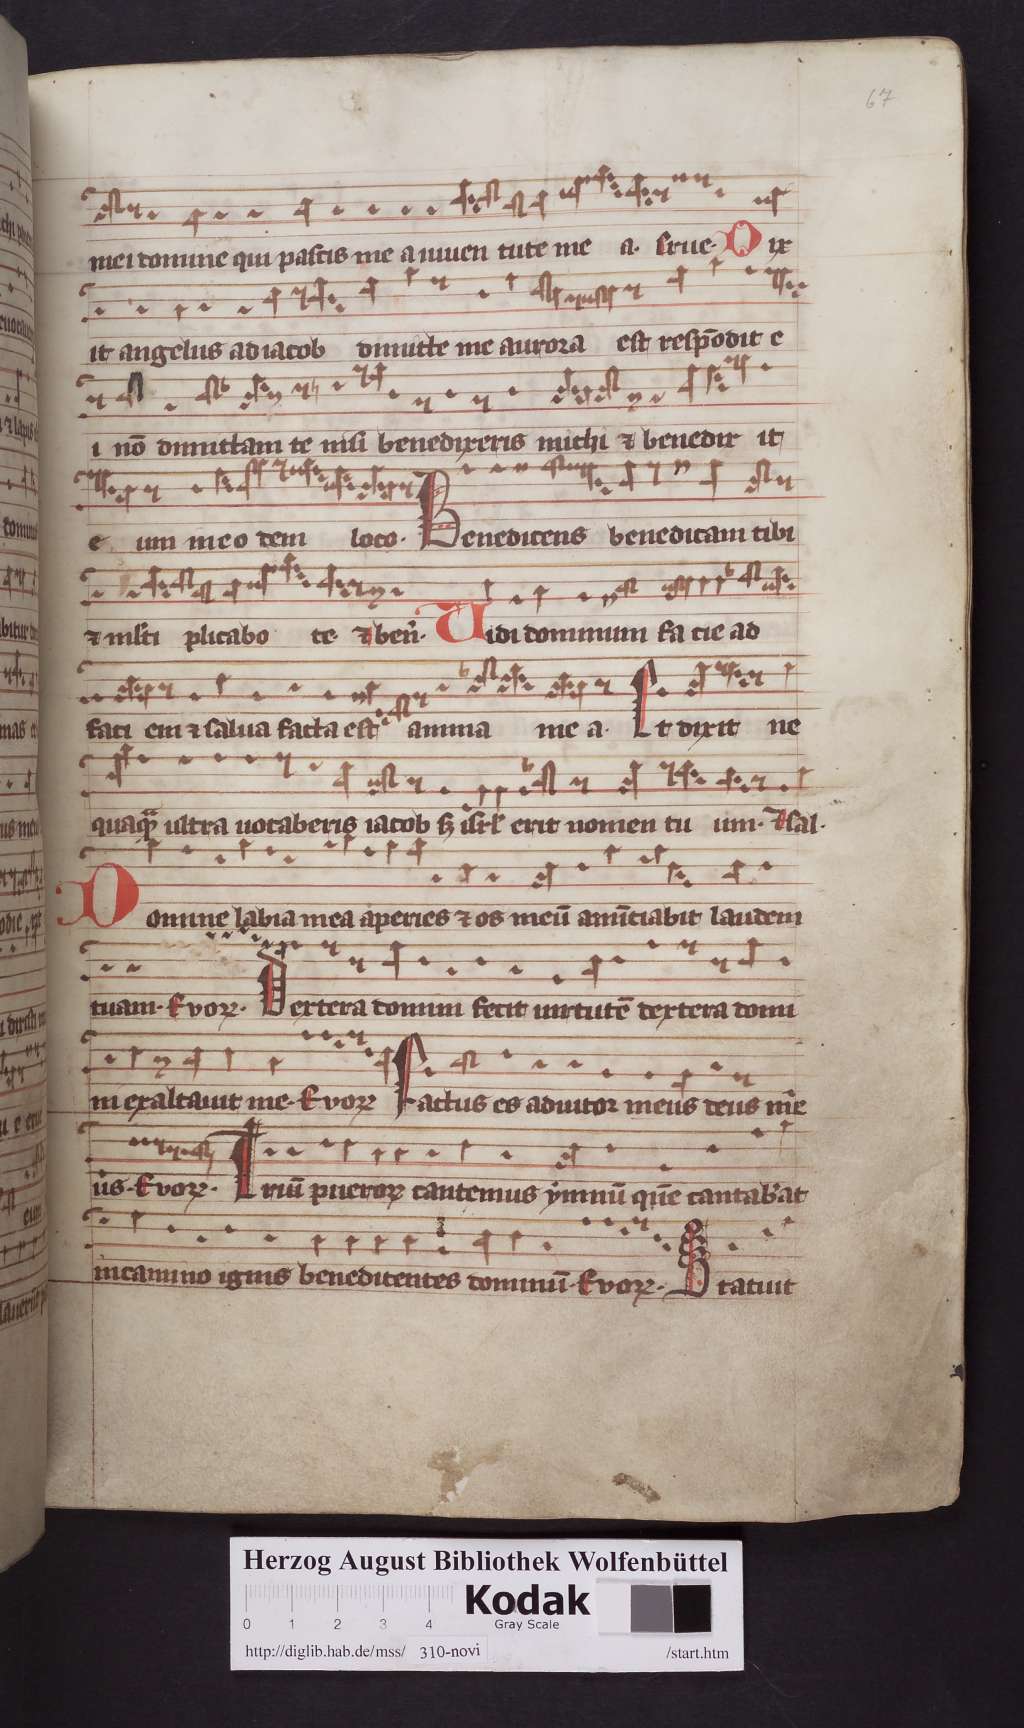 67
mei domine qui pascis me a iuuen tute me a. Crue. Dix
it angelus ad iacob dimitte me aurora est respōdit e
i nō dimittam te nisi benedixeris michi ⁊ benedix it
e um in eo dem loco. Benedicens benedicam tibi
⁊ mlti plicabo te. ⁊ ben. Uidi dominum fa cie ad
faci em ⁊ salua facta est anima me a. Et dixit ne
quaq̄ ultra uocaberis iacob erit nomen tu um. ⁊ sal.
Domine labia mea aperies ⁊ os meū anūciabit laudem
tuam. Evoꝝ. Dextera domini fecit uirtutē dextera domi
ni exaltauit me. Evoꝝ Factus es adiutor meus deus m̄e
us. Evoꝝ. Triū pueroꝝ cantemus ymnū quē cantabāt
in camino ignis benedicentes dominū. Evoꝝ. Statuit
Herzog August Bibliothek Wolfenbüttel
0 1 2 3 4
Kodak
Gray Scale
http://diglib.hab.de/mss/ 310-novi /start.htm